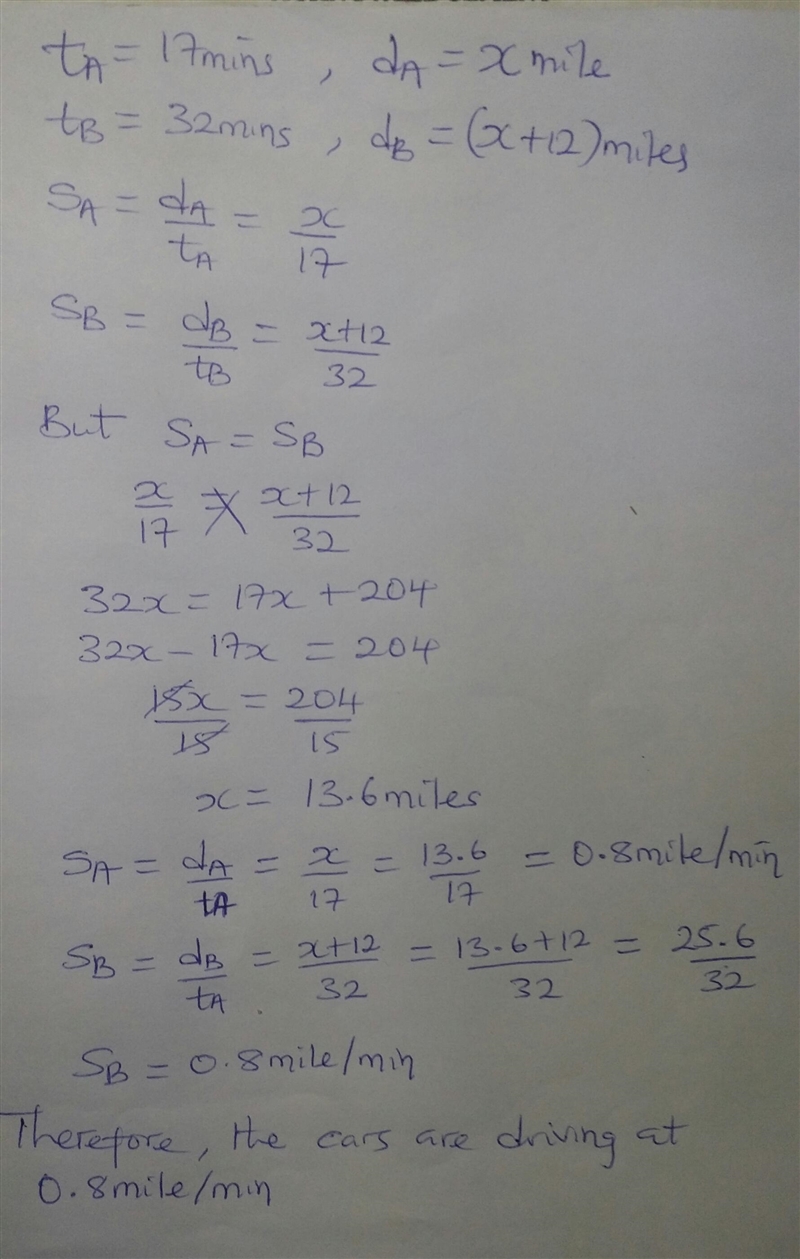 tA = 17mins , dA = x mile
tB = 32mins , dB = (x+12)miles
SA = dA/tA = x/17
SB = dB/tB = x+12/32
But SA = SB
x/17 = x+12/32
32x = 17x + 204
32x - 17x = 204
15x/15 = 204/15
x = 13.6miles
SA = dA/tA = x/17 = 13.6/17 = 0.8mile/min
SB = dB/tA = x+12/32 = 13.6+12/32 = 25.6/32
SB = 0.8mile/min
Therefore, the cars are driving at
0.8mile/min